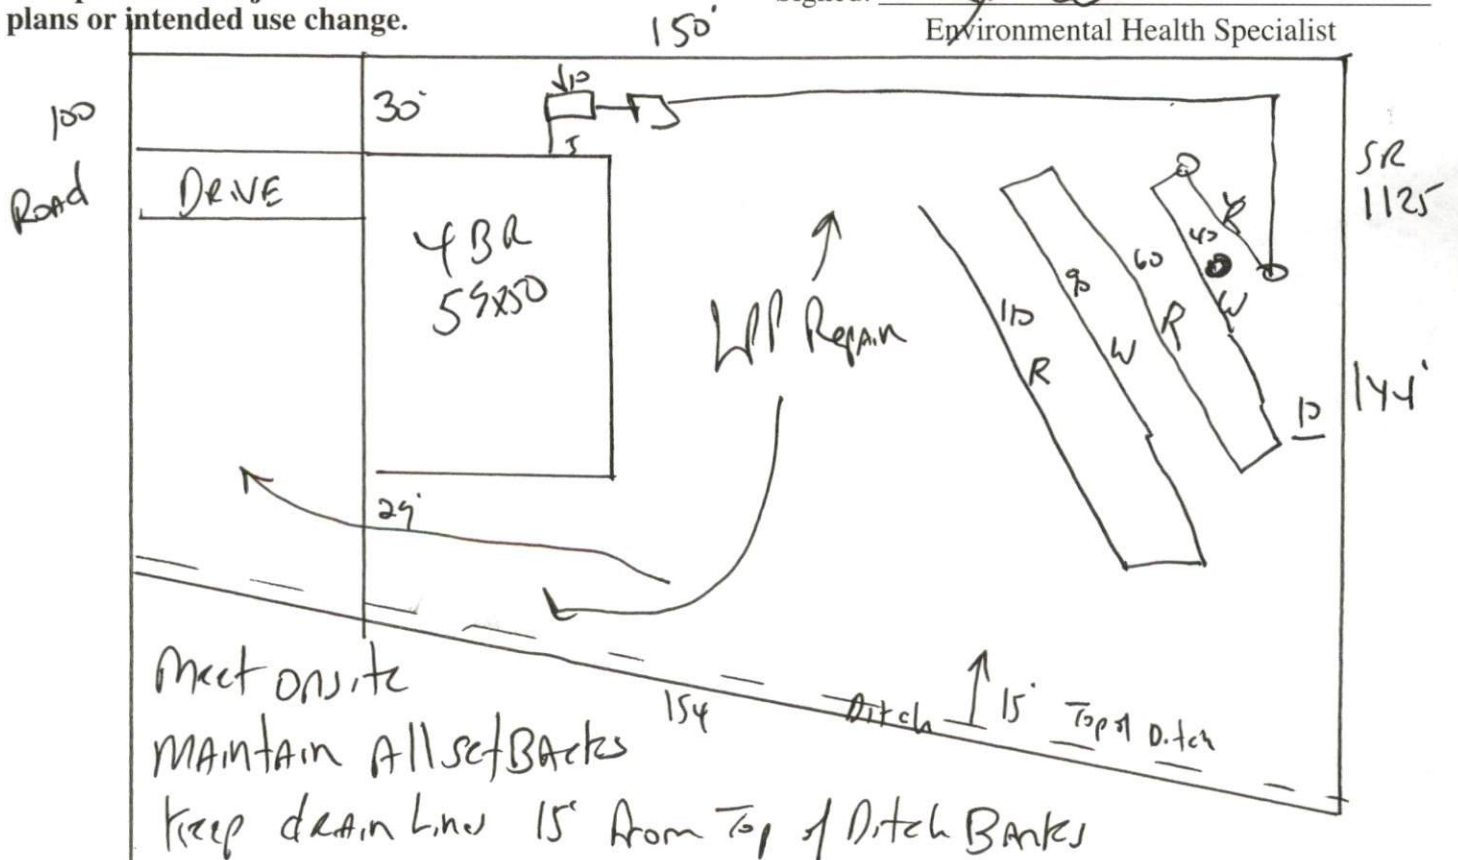 plans or intended use change.
Signed:
Environmental Health Specialist
150'
100
ROAD
30'
10
5
DRIVE
4 BR
LPP Repair
110
R
90
W
60
R
40
W
SR
1125
144'
10
29'
154
Ditch
15'
Top of Ditch
Meet onsite
MAINTAIN All setBAcks
Keep drAin Lines 15' from Top of Ditch BAnks